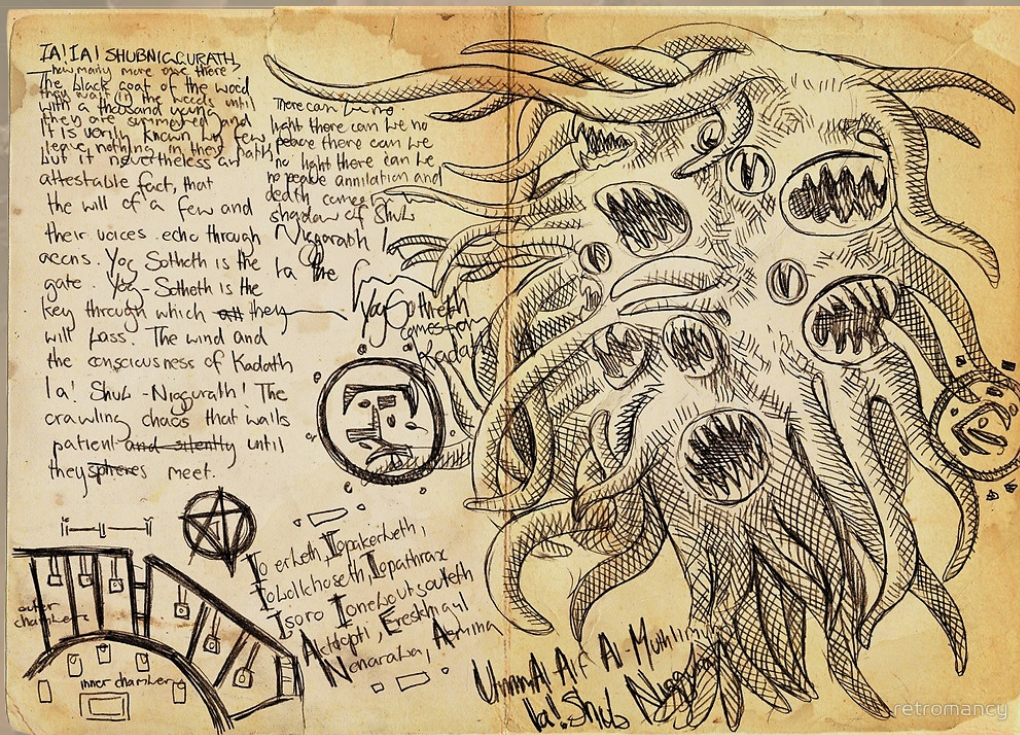 IA! IA! SHUBNIGGURATH
how many more are there
The black goat of the wood
that wait in the weeds until
with a thousand young
they are summoned and
It is verily known by few
leave nothing in their path
but it nevertheless an
attestable fact, that
the will of a few and
their voices echo through
aeons. Yog Sotheth is the
gate. Yog-Sotheth is the
key through which all they
will pass. The wind and
the consciousness of Kadath
Ia! Shub-Niggurath! The
crawling chaos that waits
patient and silently until
they spheres meet.
There can be no
light there can be no
peace there can be
no light there can be
no peace annilation and
death comes
shadow of Shub
Niggarath Ia
Ia the
Yog Sotheth
comes from
Kadath
Io erketh, Iopakerbeth,
Iobolchoseth, Iopathrax
Isoro Ioneboutsouteth
Aktiopti, Ereskhigal
Nenaraba, Aemina
outer
chambers
inner chamber
Umm Al Aif Al-Muhlimin
Ia! Shub Niggurath
retromancy